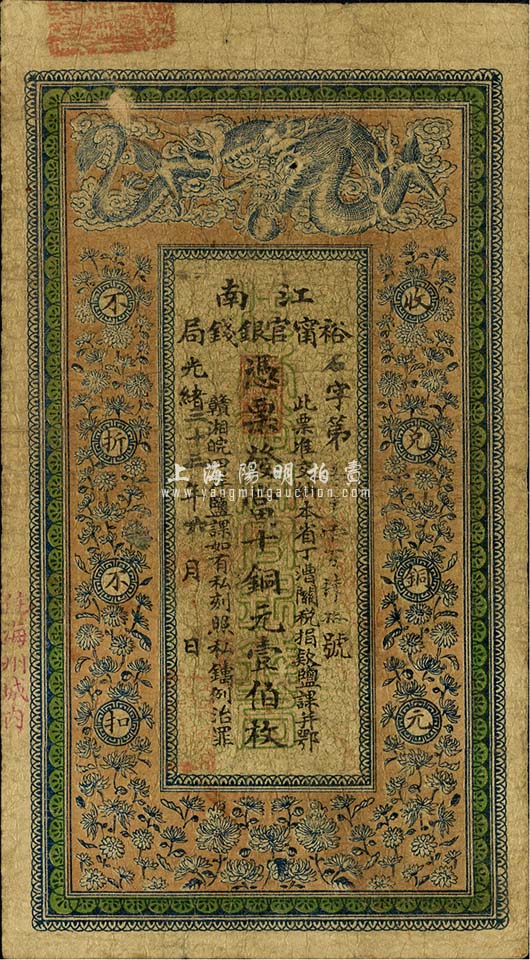 江南
裕甯官銀錢局
字第
號
此票准交本省丁漕關稅捐款鹽課并鄂
憑票發當十銅元壹伯枚
贛湘皖四 鹽課如有私刻照私鑄例治罪
光緒三十 年 月 日
收兌銅元
不折不扣
海州城內
上海陽明拍賣
www.yangmingauction.com